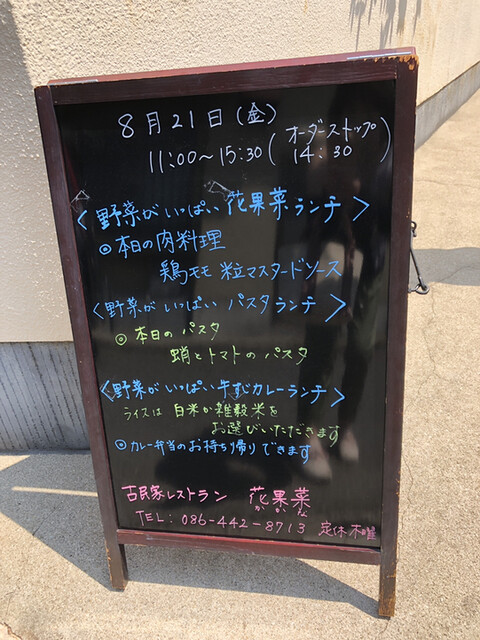 8月21日(金)
11:00〜15:30(オーダーストップ 14:30)
<野菜がいっぱい花果菜ランチ>
◎本日の肉料理
鶏モモ 粒マスタードソース
<野菜がいっぱい パスタランチ>
◎本日のパスタ
蛸とトマトのパスタ
<野菜がいっぱい牛すじカレーランチ>
ライスは 白米か雑穀米を
お選びいただきます
◎カレー弁当のお持ち帰りできます
古民家レストラン 花果菜
かかな
TEL: 086-442-8713 定休 木曜